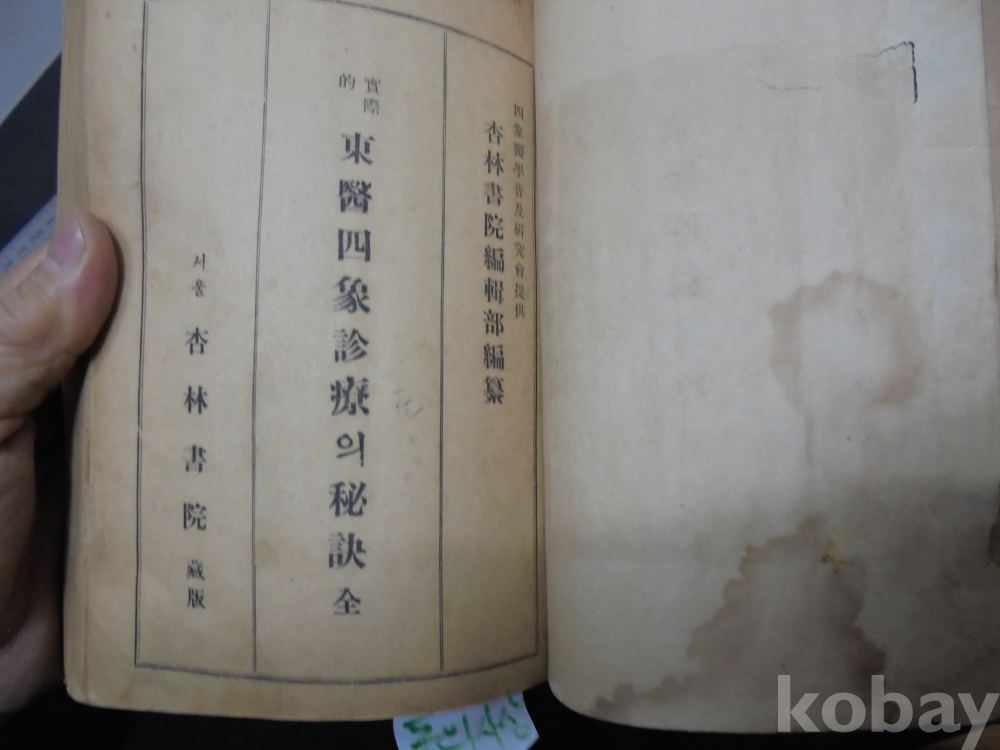 四象醫學普及硏究會提供
杏林書院編輯部編纂
實際的
東醫四象診療의秘訣 全
서울 杏林書院 藏版
동의사상
kobay